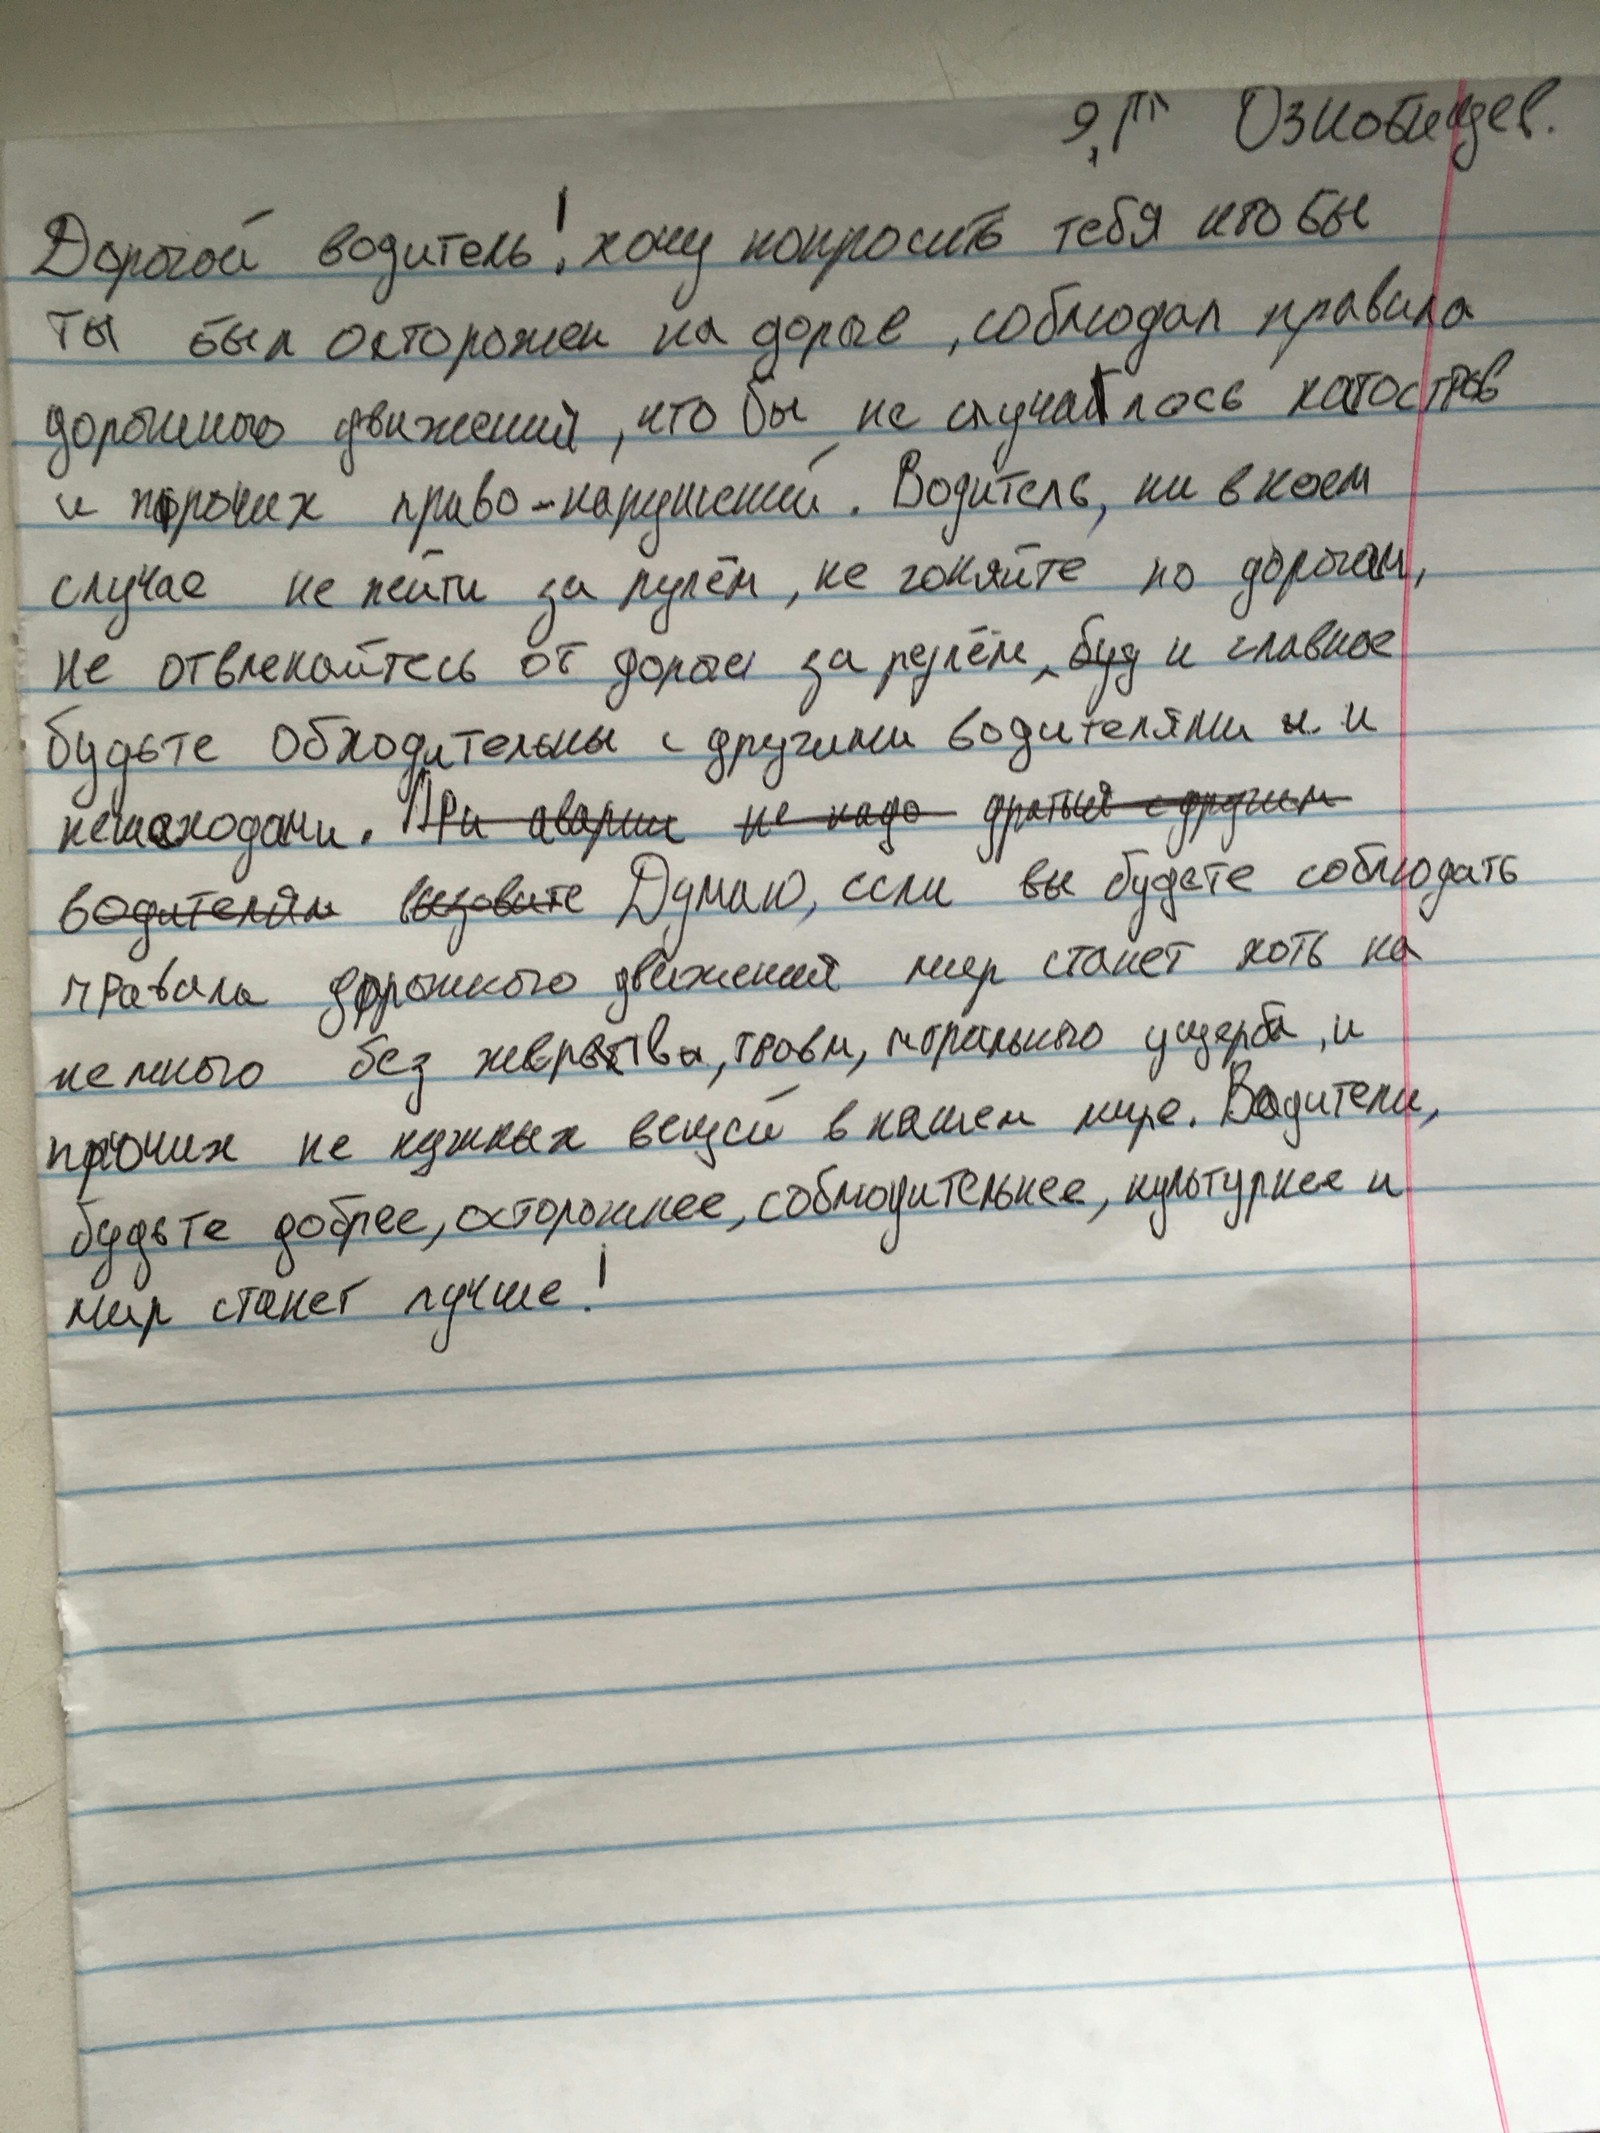 Ознобищев.
Дорогой водитель! хочу попросить тебя что бы
ты был осторожен на дороге, соблюдал правила
дорожного движений, что бы не случалось катостров
и прочих право-нарушений. Водитель, ни в коем
случае не пейти за рулём, не гоняйте по дорогам,
не отвлекайтесь от дороги за рулём, буд и главное
будьте обходительны с другими водителями и. и
пешеходами. При аварии не надо драться с другим
водителям вызовите Думаю, если вы будете соблюдать
правила дорожного движений мир станет хоть на
немного без жертв, травм, морального ущерба, и
прочих не нужных вещей в нашем мире. Водители,
будьте добрее, осторожнее, соблюдительнее, культурнее и
мир станет лучше!